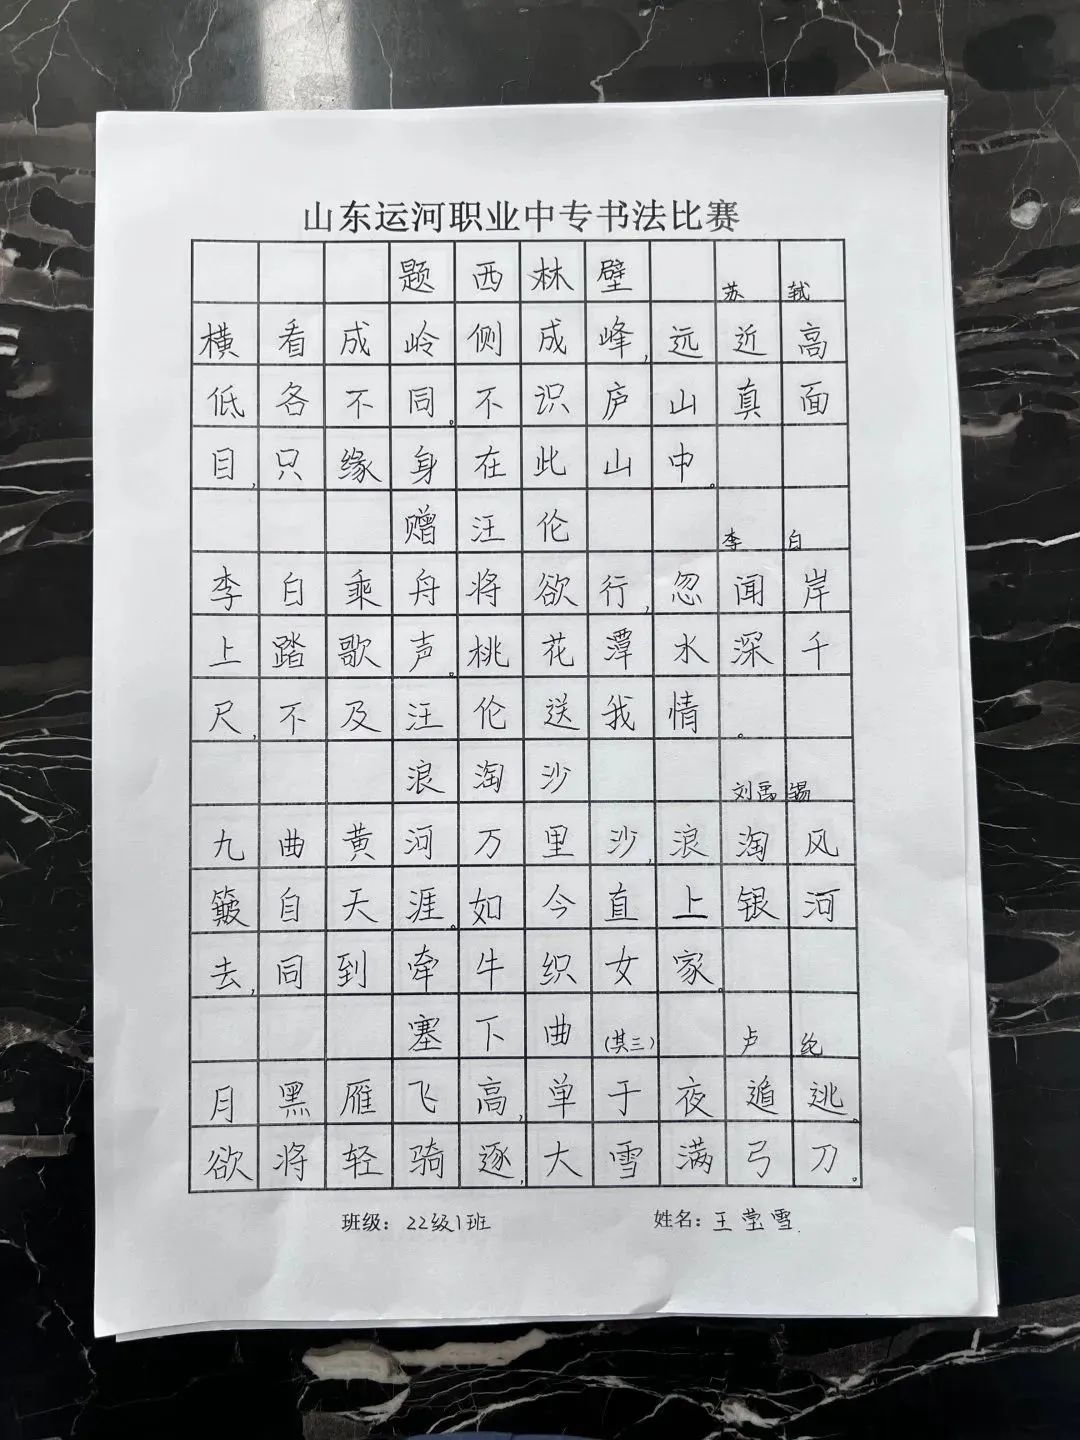 山东运河职业中专书法比赛
题西林壁 苏轼
横看成岭侧成峰,远近高
低各不同。不识庐山真面
目,只缘身在此山中。
赠汪伦 李白
李白乘舟将欲行,忽闻岸
上踏歌声。桃花潭水深千
尺,不及汪伦送我情。
浪淘沙 刘禹锡
九曲黄河万里沙,浪淘风
簸自天涯。如今直上银河
去,同到牵牛织女家。
塞下曲(其三) 卢纶
月黑雁飞高,单于夜遁逃。
欲将轻骑逐,大雪满弓刀。
班级:22级1班 姓名:王莹雪